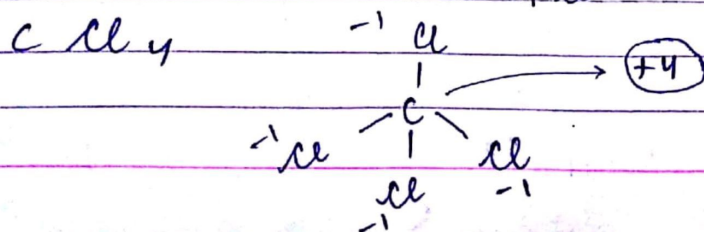 C Cl4
-1 Cl
C +4
-1 Cl Cl
Cl -1
-1